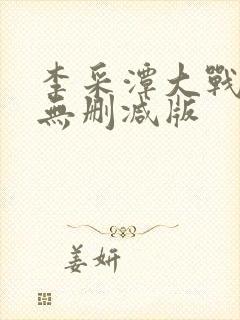 李采潭大戰
無刪减版
姜妍